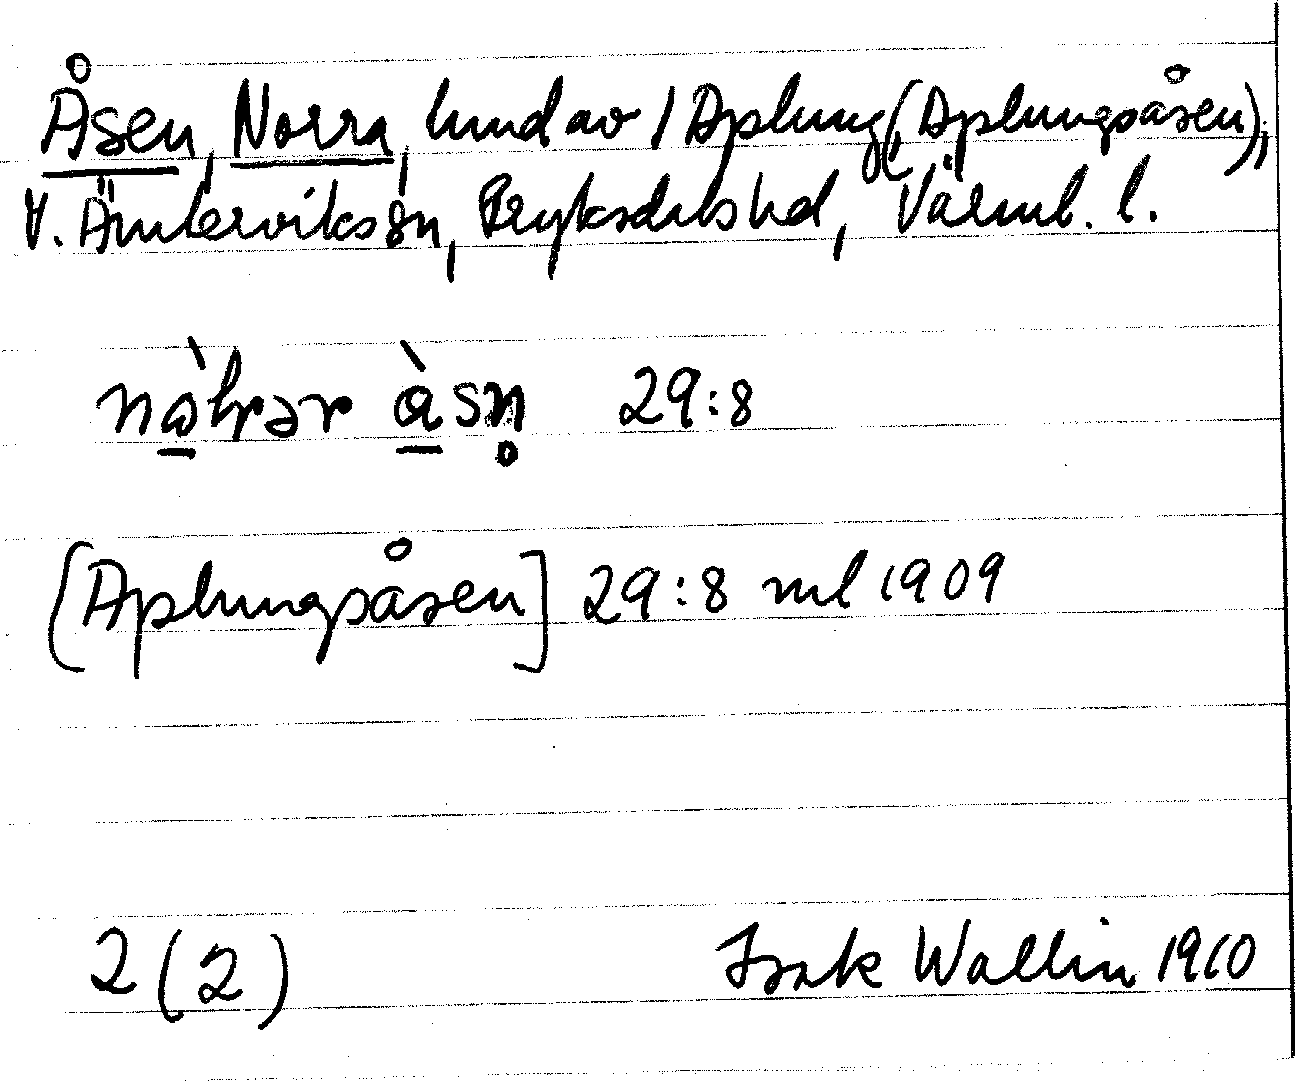 Åsen, Norra, hmd av 1 Aplung (Aplungsåsen),
V. Ämterviks sn, Fryksdals hd, Värml. l.
29:8
[Aplungsåsen] 29:8 ml 1909
2 (2) Isak Wallin 1910